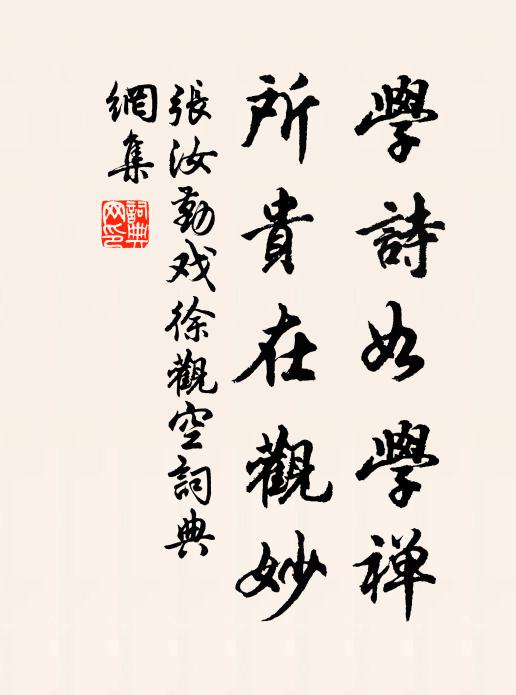 學詩如學禅
所貴在觀妙
張汝勤戏徐觀空詞典
網集
詞典
网印